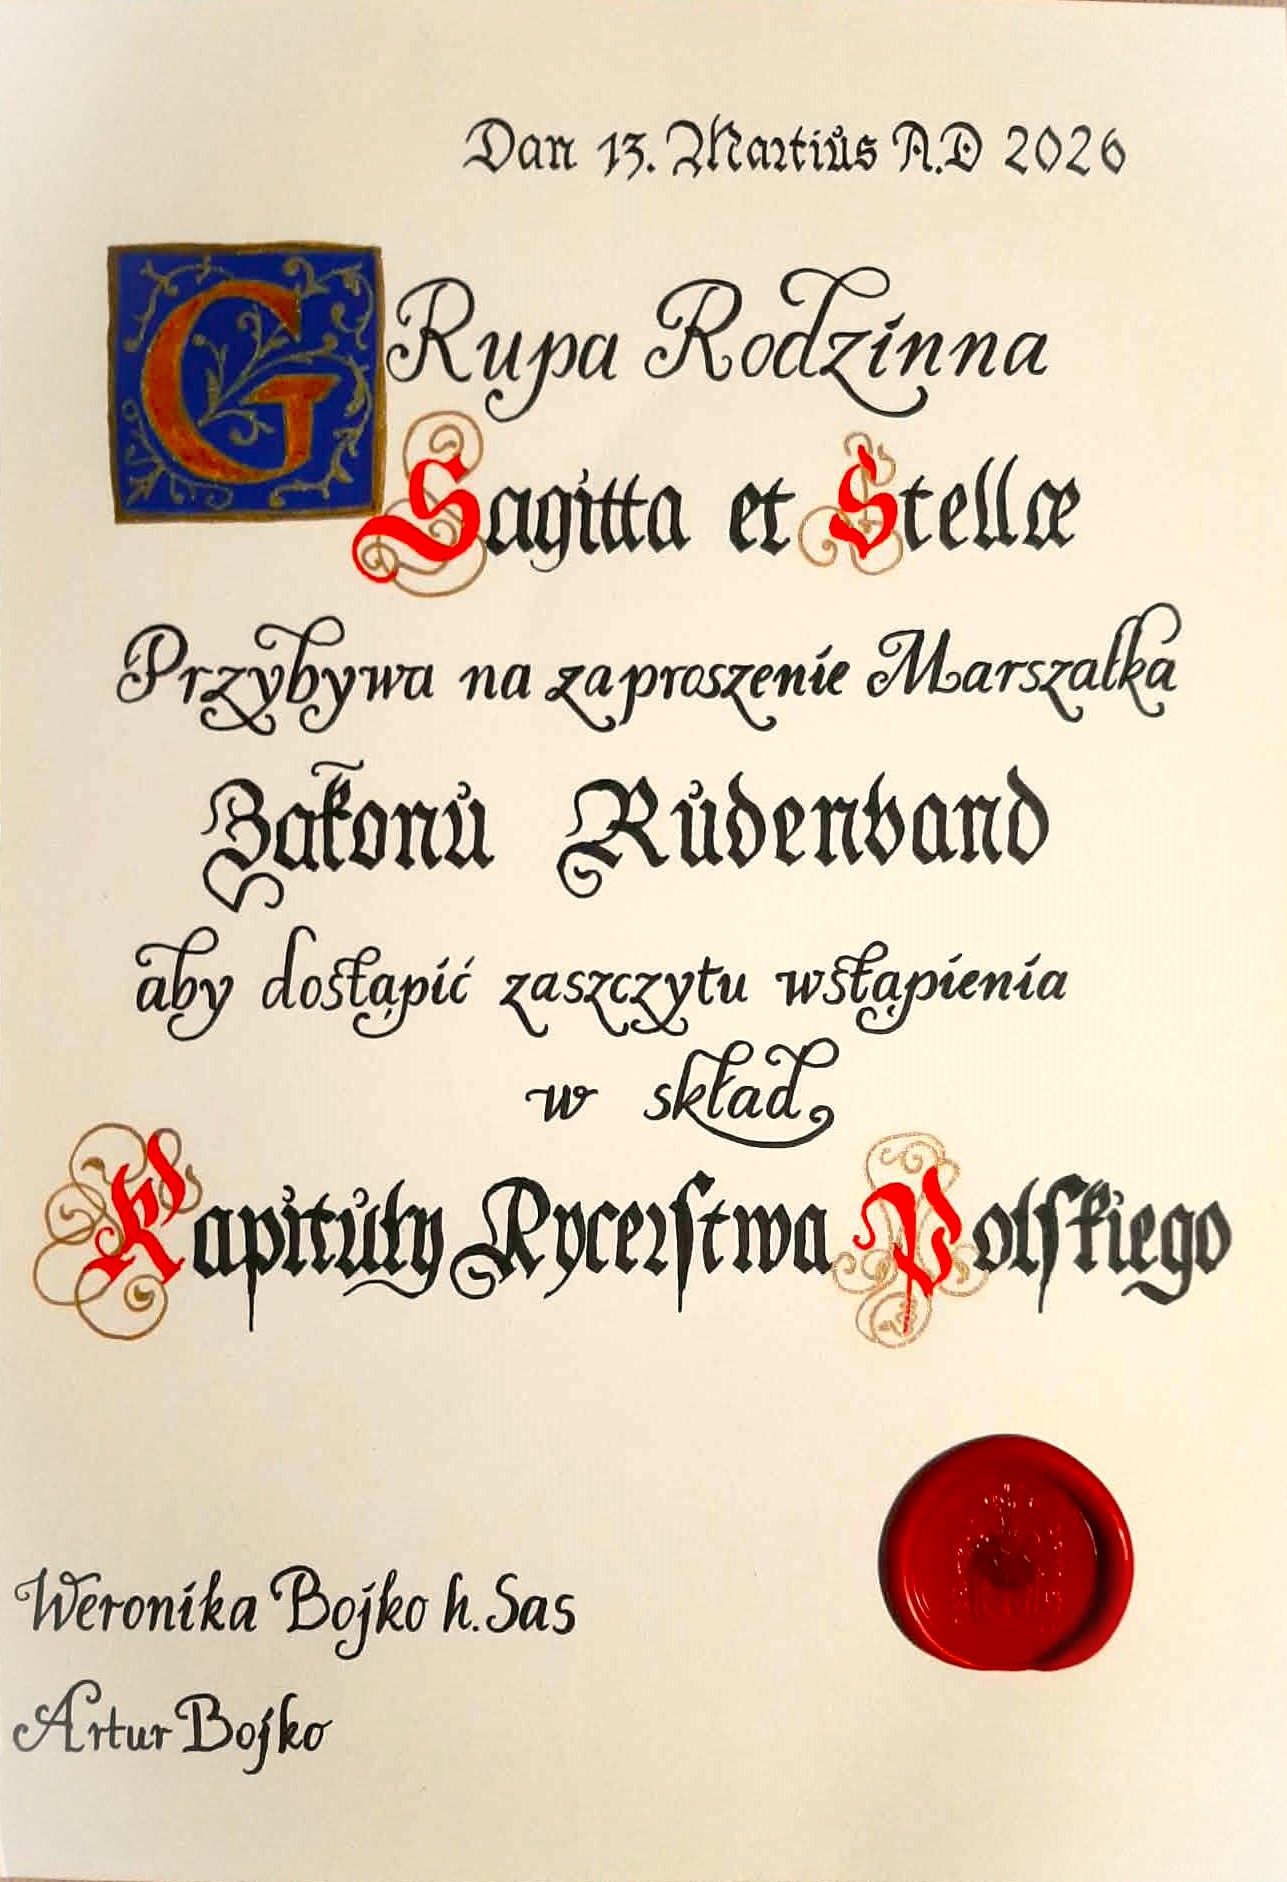 Dan 13. Martius A.D 2026
GRupa Rodzinna
Sagitta et Stellæ
Przybywa na zaproszenie Marszałka
Zakonu Rudenband
aby dostąpić zaszczytu wstąpienia
w skład
Kapituły Rycerstwa Polskiego
Weronika Bojko h. Sas
Artur Bojko